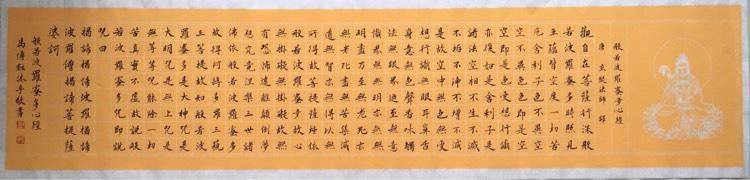 般若波羅蜜多心經
唐 玄奘法師 譯
觀自在菩薩行深般
若波羅蜜多時照見
五蘊皆空度一切苦
厄舍利子色不異空
空不異色色即是空
空即是色受想行識
亦復如是舍利子是
諸法空相不生不滅
不垢不淨不增不減
是故空中無色無受
想行識無眼耳鼻舌
身意無色聲香味觸
法無眼界乃至無意
識界無無明亦無無
明盡乃至無老死亦
無老死盡無苦集滅
道無智亦無得以無
所得故菩提薩埵依
般若波羅蜜多故心
無掛礙無掛礙故無
有恐怖遠離顛倒夢
想究竟涅槃三世諸
佛依般若波羅蜜多
故得阿耨多羅三藐
三菩提故知般若波
羅蜜多是大神咒是
大明咒是無上咒是
無等等咒能除一切
苦真實不虛故說般
若波羅蜜多咒即說
咒曰
揭諦揭諦波羅揭諦
波羅僧揭諦菩提薩
婆訶
般若波羅蜜多心經
沐手敬書